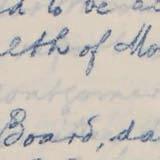 d to be a
lth of Mo
Board, da